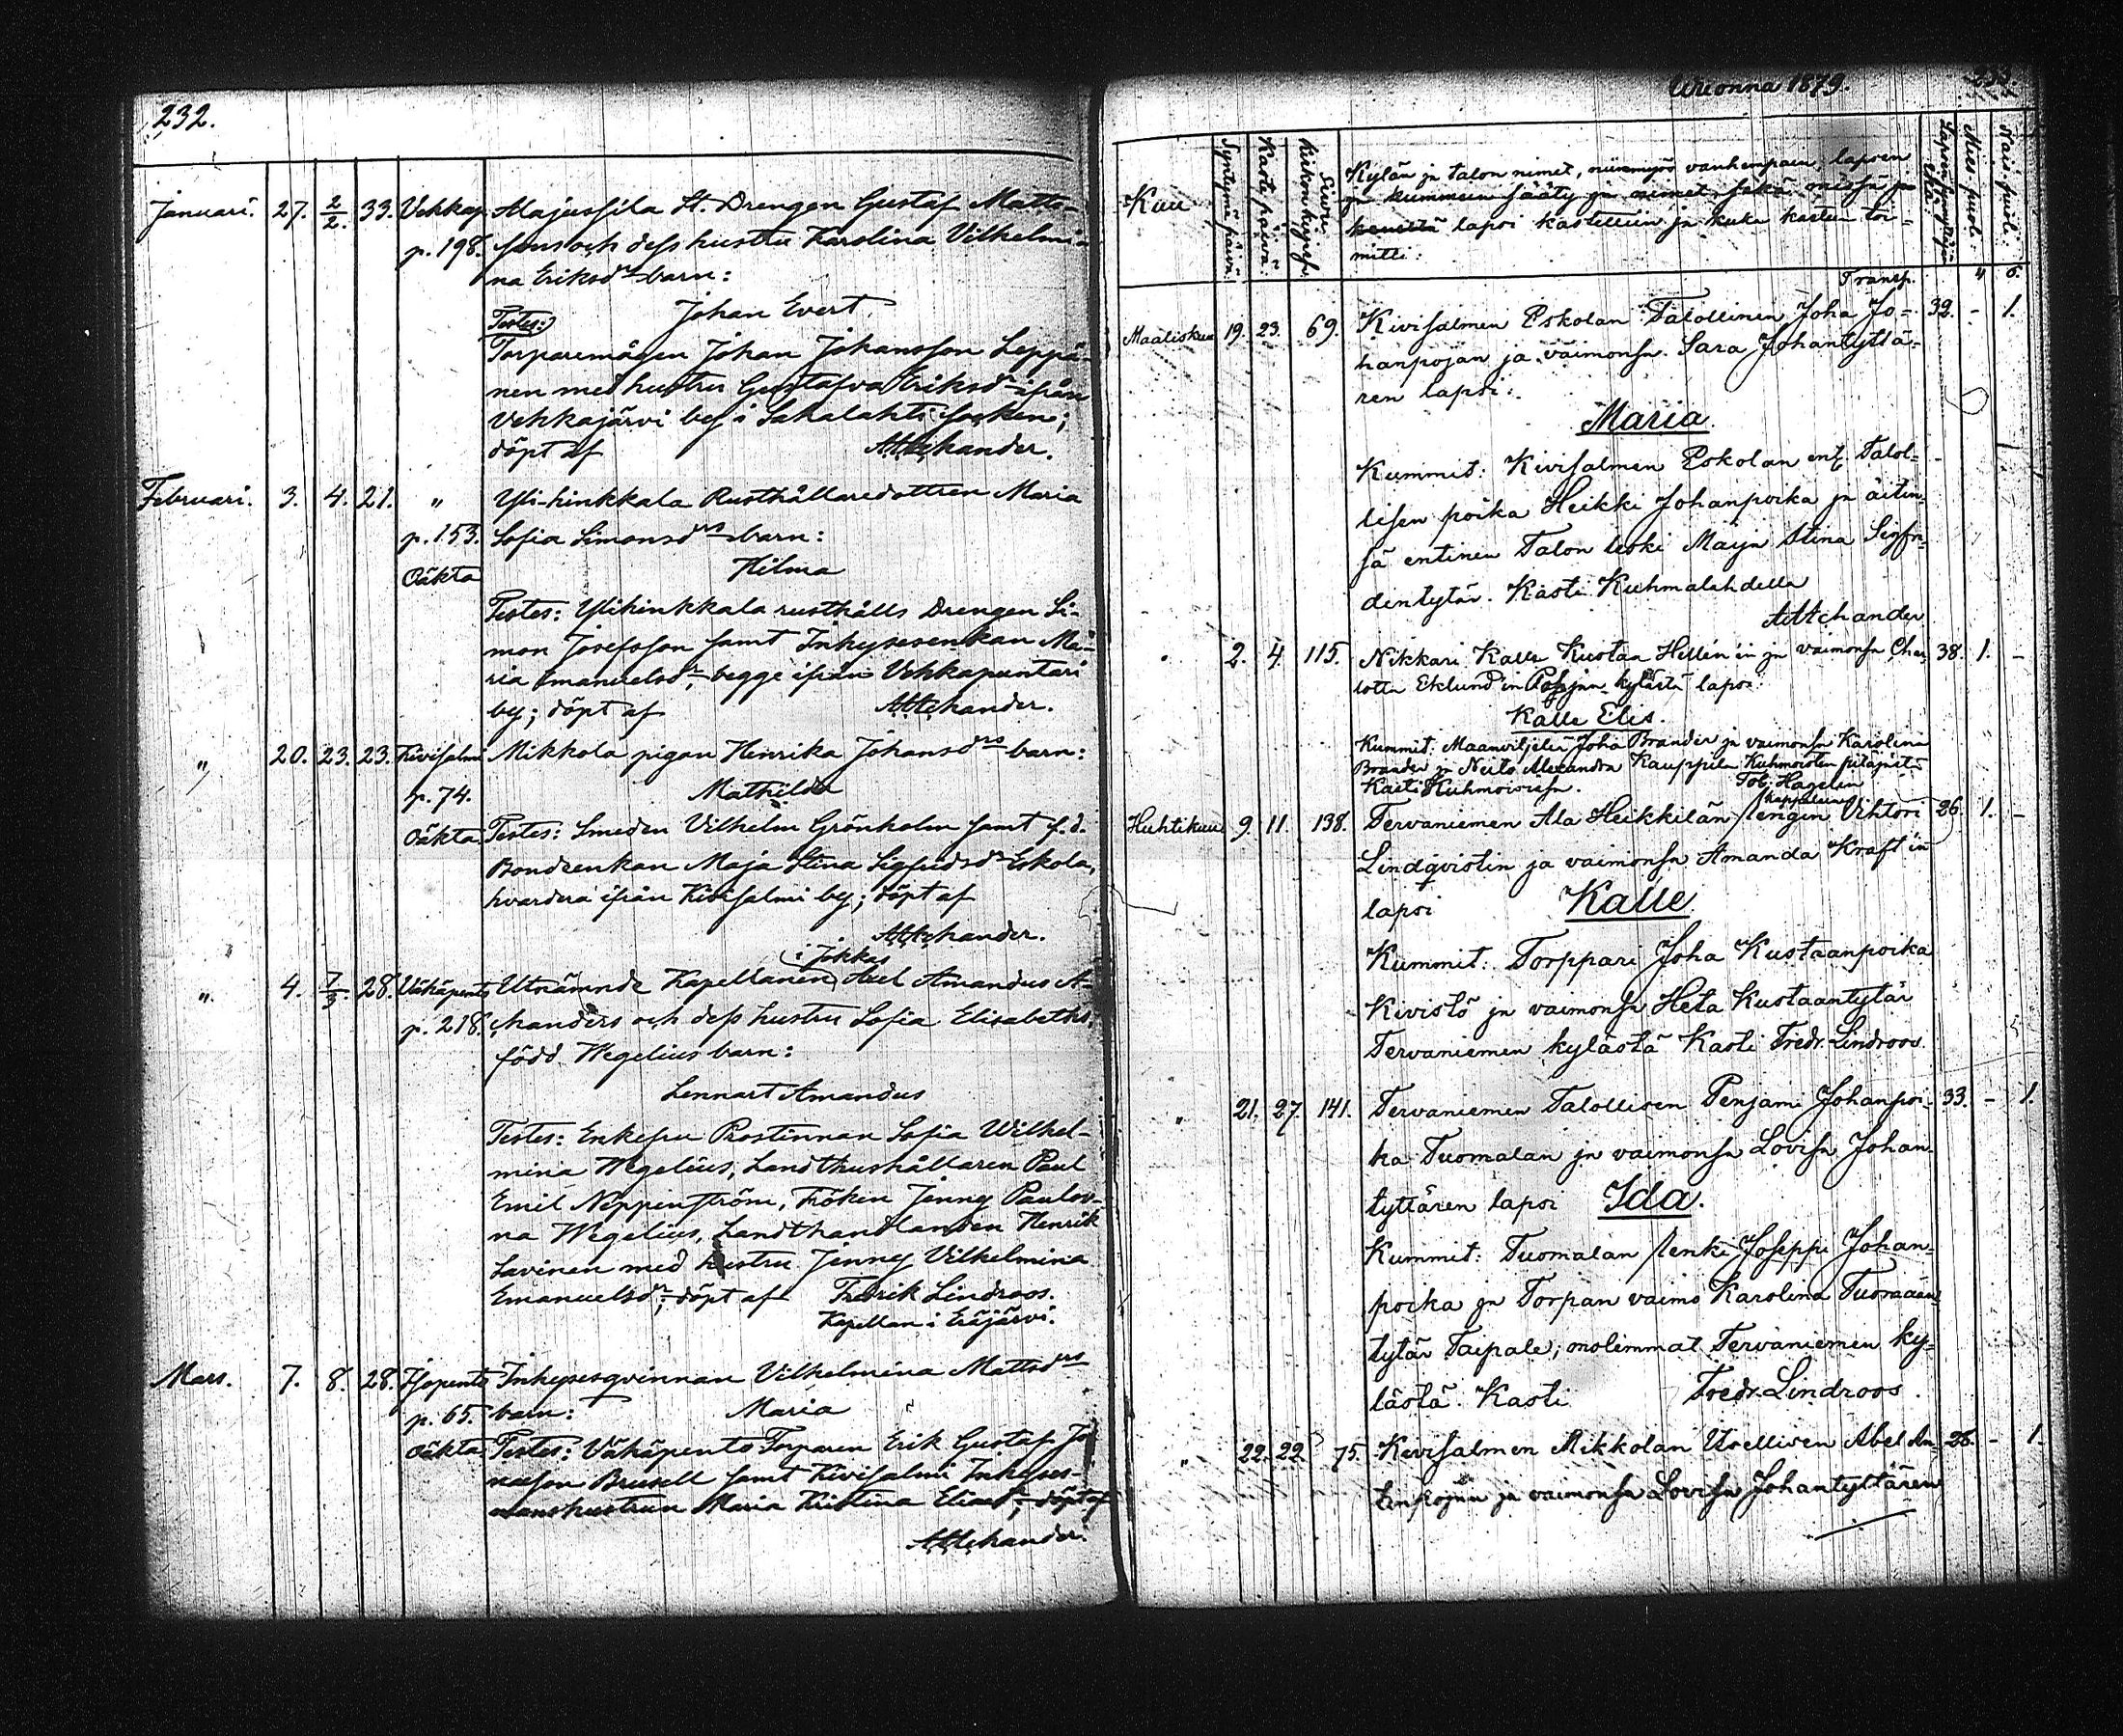 232.
Januari. 27. 2/2. 33. Vehkap. Majussila St. Drengen Gustaf Matts-
p. 198. sons och dess hustru Karolina Vilhelmi-
na Eriksdrs barn:
Johan Evert.
Testes:
Torparemågen Johan Johansson Leppä-
nen med hustru Gustafva Eriksdr ifrån
Vehkajärvi by i Sahalahti socken;
döpt af
Februari. 3. 4. 21. " Yli-hinkkala Rusthållaredottren Maria
p. 153. Sofia Simonsdrs barn:
Oäkta Hilma
Testes: Ylihinkkala rusthålls Drengen Si-
mon Josefsson samt Inhysesenkan Ma-
ria Emanuelsdr, begge ifrån Vehkapuntari
by; döpt af
" 20. 23. 23. Kivisalmi Mikkola pigan Henrika Johansdrs barn:
p. 74. Mathilda
Oäkta Testes: Smeden Vilhelm Grönholm samt f.d.
Bondeenkan Maja Stina Sigfridsdr Eskola,
hvardera ifrån Kivisalmi by; döpt af
i Jokkas
" 4. 7/3. 28. Vähäpento Utnämnde Kapellanen Axel Amandus
p. 218. och dess hustru Sofia Elisabeths,
född Wegelius barn:
Lennart Amandus
Testes: Enkefru Prostinnan Sofia Wilhel-
mina Wegelius, Landthushållaren Paul
Emil Neppenström, Fröken Jenny Paulov-
na Wegelius, Landthandlanden Henrik
Savinen med hustru Jenny Vilhelmina
Emanuelsdr; döpt af Fredrik Lindroos.
Kapellan i Eräjärvi.
Mars. 7. 8. 28. Isopento Inhysesqvinnan Vilhelmina Mattsdrs
p. 65. barn: Maria
Oäkta Testes: Vähäpento Torparen Erik Gustaf
Brusell samt Kivisalmi Inhyses-
manshustrun Maria Kristina Eliaedr; döpt af
Wuonna 1879.
Kuu
Syntymä päivä.
Kaste päivä.
Sivu kirkonkirjassa.
Kylän ja talon nimet, niinmyös vanhempain, lapsen
ja kummein sääty ja nimet sekä missä ja
keneltä lapsi kastettiin ja kuka kasteen toi-
mitti:
Mies. puoli.
Nais. puoli.
Transp. 4 6.
Maaliskuu 19. 23. 69. Kivisalmen Eskolan Talollinen Joha Jo- 32. - 1.
hanpojan ja vaimonsa Sara Johantyttä-
ren lapsi:
Maria
Kummit: Kivisalmen Eskolan ent. Talol-
lisen poika Heikki Johanpoika ja äitin-
sä entinen Talon leski Maija Stina Sigfri-
dentytär. Kasti Kuhmalahdella
" 2. 4. 115. Nikkari Kalle Kustaa Hellén'in ja vaimonsa Char- 38. 1. -
lotta Eklund'in Pohjan kylästä lapsi:
Kalle Elis.
Kummit: Maanviljeliä Joha Brander ja vaimonsa Karolina
Brander ja Neito Alexandra Kauppila Kuhmoisten pitäjästä
Kasti Kuhmoisissa. Tob. Hagelin
kappalainen
Huhtikuu 9. 11. 138. Tervaniemen Ala Heikkilän rengin Vihtori 26. 1. -
Lindqvistin ja vaimonsa Amanda Kraft'in
lapsi Kalle
Kummit: Torppari Joha Kustaanpoika
Kivistö ja vaimonsa Heta Kustaantytär
Tervaniemen kylästä Kasti Fredr. Lindroos.
" 21. 27. 141. Tervaniemen Talollisen Penjami Johanpoi- 33. - 1.
ka Tuomalan ja vaimonsa Lovisa Johan-
tyttären lapsi Ida.
Kummit: Tuomalan renki Joseppi Johan-
poika ja Torpan vaimo Karolina Tuomaan-
tytär Taipale, molemmat Tervaniemen ky-
lästä. Kasti Fredr. Lindroos.
" 22. 22. 75. Kivisalmen Mikkolan Itsellisen Abel An- 28. - 1.
tinpojan ja vaimonsa Lovisa Johantyttären